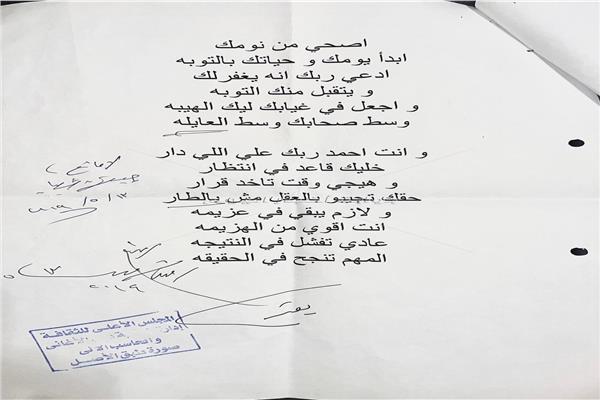 اصحي من نومك
ابدأ يومك و حياتك بالتوبه
ادعي ربك انه يغفرلك
و يتقبل منك التوبه
و اجعل في غيابك ليك الهيبه
وسط صحابك وسط العايله
و انت احمد ربك علي اللي دار
خليك قاعد في انتظار
و هيجي وقت تاخد قرار
حقك تجيبو بالعقل مش بالطار
و لازم يبقي في عزيمه
انت اقوي من الهزيمه
عادي تفشل في النتيجه
المهم تنجح في الحقيقه
لا مانع
٢٠١٩
المجلس الأعلى للثقافة
والحاسب الآلى
صورة طبق الأصل